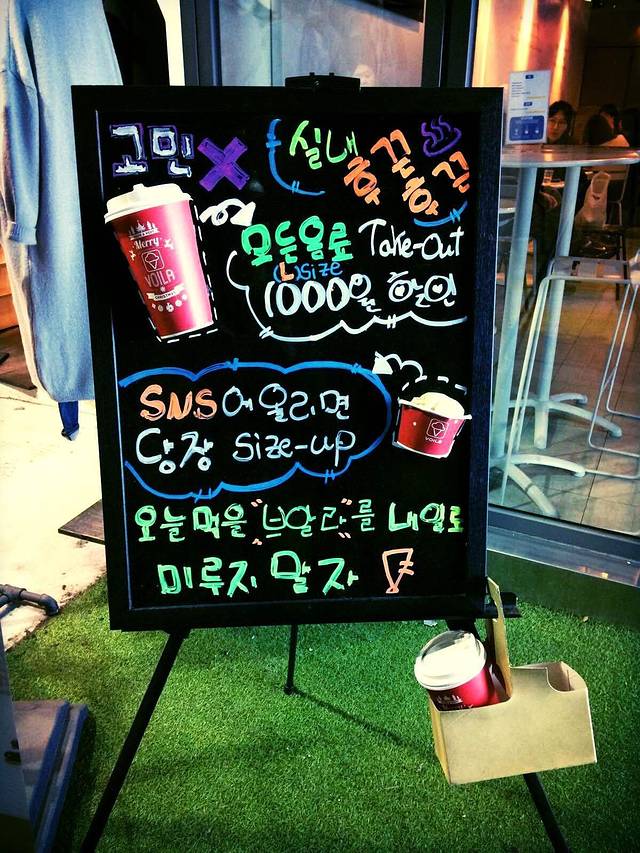 고민 X
실내 후끈후끈
Merry
VOILA
CHRISTMAS
모든음료 Take-Out
(L)size
1000원 할인
SNS에 올리면
당장 size-up
VOILA
오늘 먹을 "브알라"를 내일로
미루지 말자